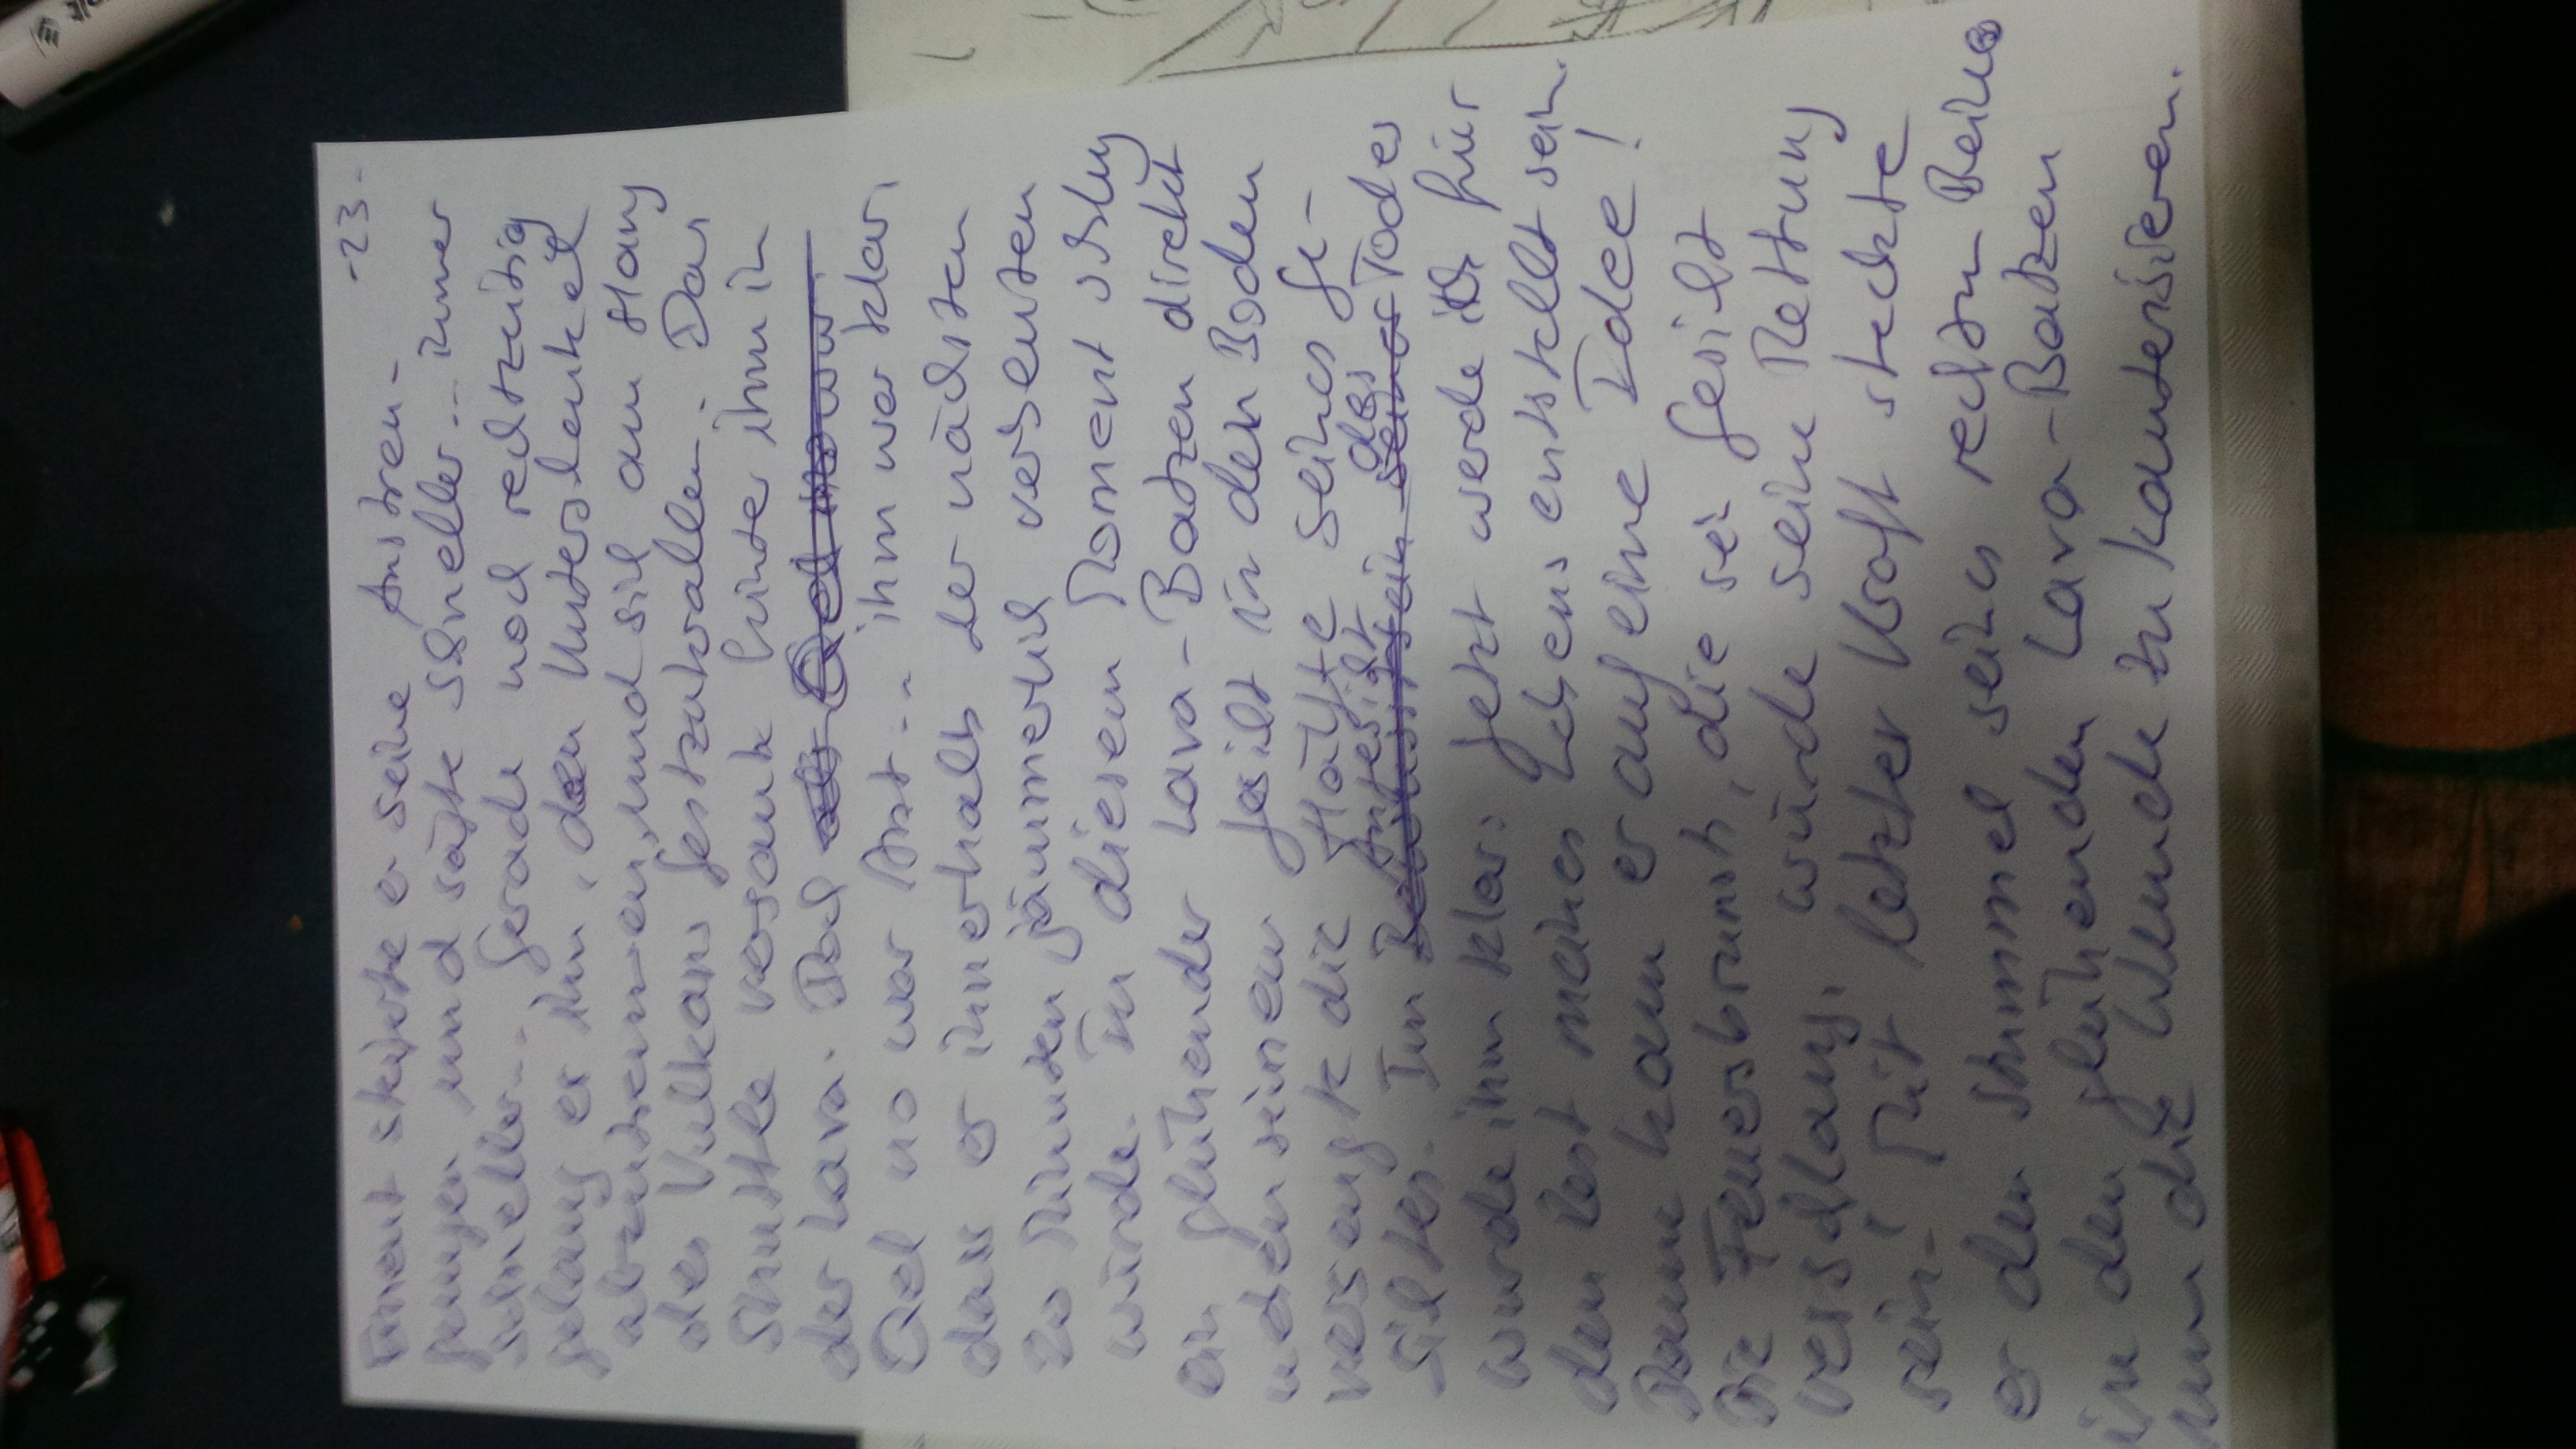 -23-
Erneut steigerte er seine Anstren-
gungen und sägte schneller... immer
schneller... Gerade noch rechtzeitig
gelang er ihm, den Unterschenkel
abzutrennen, und sich am Hang
des Vulkans festzukrallen. Das
Shuttle versank hinter ihm in
der Lava. Doch
Qel no war Arzt... ihm war klar,
dass er innerhalb der nächsten
20 Minuten jämmerlich verbluten
würde. In diesem Moment schlug
ein glühender Lava-Batzen direkt
neben seinem Gesicht in den Boden
versengte die Hälfte seines Ge-
sichtes. Im Angesicht des Todes
wurde ihm klar: Jetzt werde ich für
den Rest meines Lebens entstellt sein.
Dann kam er auf eine Idee!
Die Feuersbrunst, die sei Gesicht
verschlang, würde seine Rettung
sein! Mit letzter Kraft steckte
er den Stummel seines rechten Beines
in den glühenden Lava-Batzen
um die Wunde zu kauterisieren.